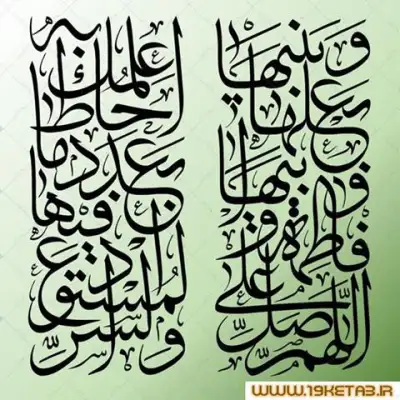 اللهم صل علی
فاطمة و ابیها
و بعلها
و بنیها
والسر
المستودع
فیها
بعدد ما
احاط
به علمك
WWW.19KETAB.IR